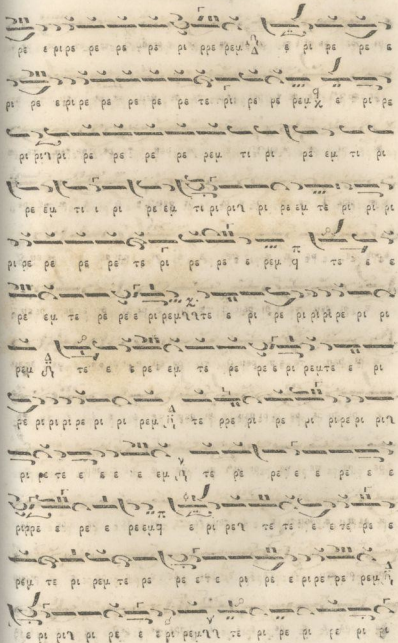 ρε ε ρι ρε ρε ρε ρε ρι ρρε ρεμ ε ρι ρε ρε ε
ρι ρε ε ρι ρε ρε ρε ρε ρε τε ρι ρε ρε ρεμ ε ρι ρε
ρι ρι ρι ρε ρε ρε ρεμ τι ρι ρε εμ τι ρι
ρε εμ τι ι ρι ρε εμ τι ρι ρι ρι ρε εμ τε ρι ρι ρι
ρι ρε ρε ρε ρε τε ρι ρε ρε ε ρεμ τε ε ε
ρε εμ τε ρε ρε ε ρι ρεμ τε ε ρι ρε ρι ρι ρι ρε ρι ρι
ρεμ τε ε ε ρε εμ τε ρε ρε ε ρι ρεμ τε ε ρι
ρε ρι ρι ρι ρε ρι ρι ρεμ τε ρρε ρι ρε ρι ρι ρε ρι ρι
ρι ρε τε ε ε ε ε εμ τε ρε ρε ε ρε ε ε
ρι ρρε ε ρε ε ρε εμ ε ρι ρε τε τε ε ε τε ρε ε
ρεμ τε ρι ρεμ τε ρε ρε ε τε ρι ρε ε ρι ρε ρε ρεμ
ε ρι ρι ρι ρε ε ε ρι ρεμ τε ε ρι ρε τε ρι ρι